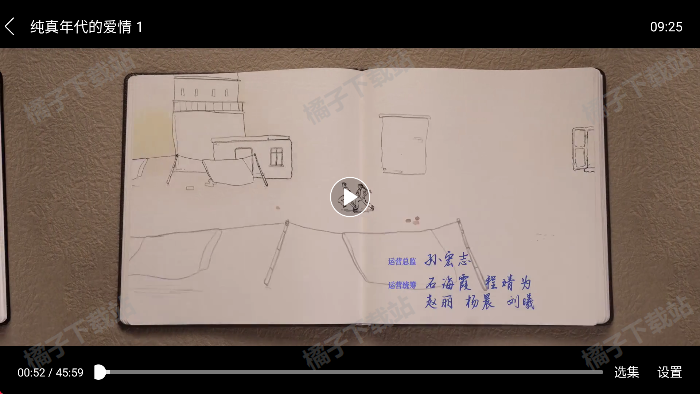 纯真年代的爱情 1
09:25
橘子下载站
橘子下载站
橘子下载站
运营总监 孙宏志
运营统筹 石海霞 程靖为
赵丽 杨晨 刘曦
橘子下载站
橘子下载站
橘子下载站
00:52 / 45:59
选集 设置